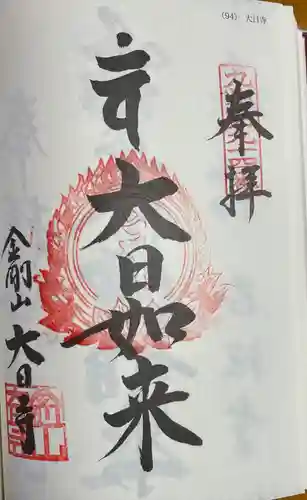 (94) 大日寺
奉拝
大日如来
金剛山 大日寺